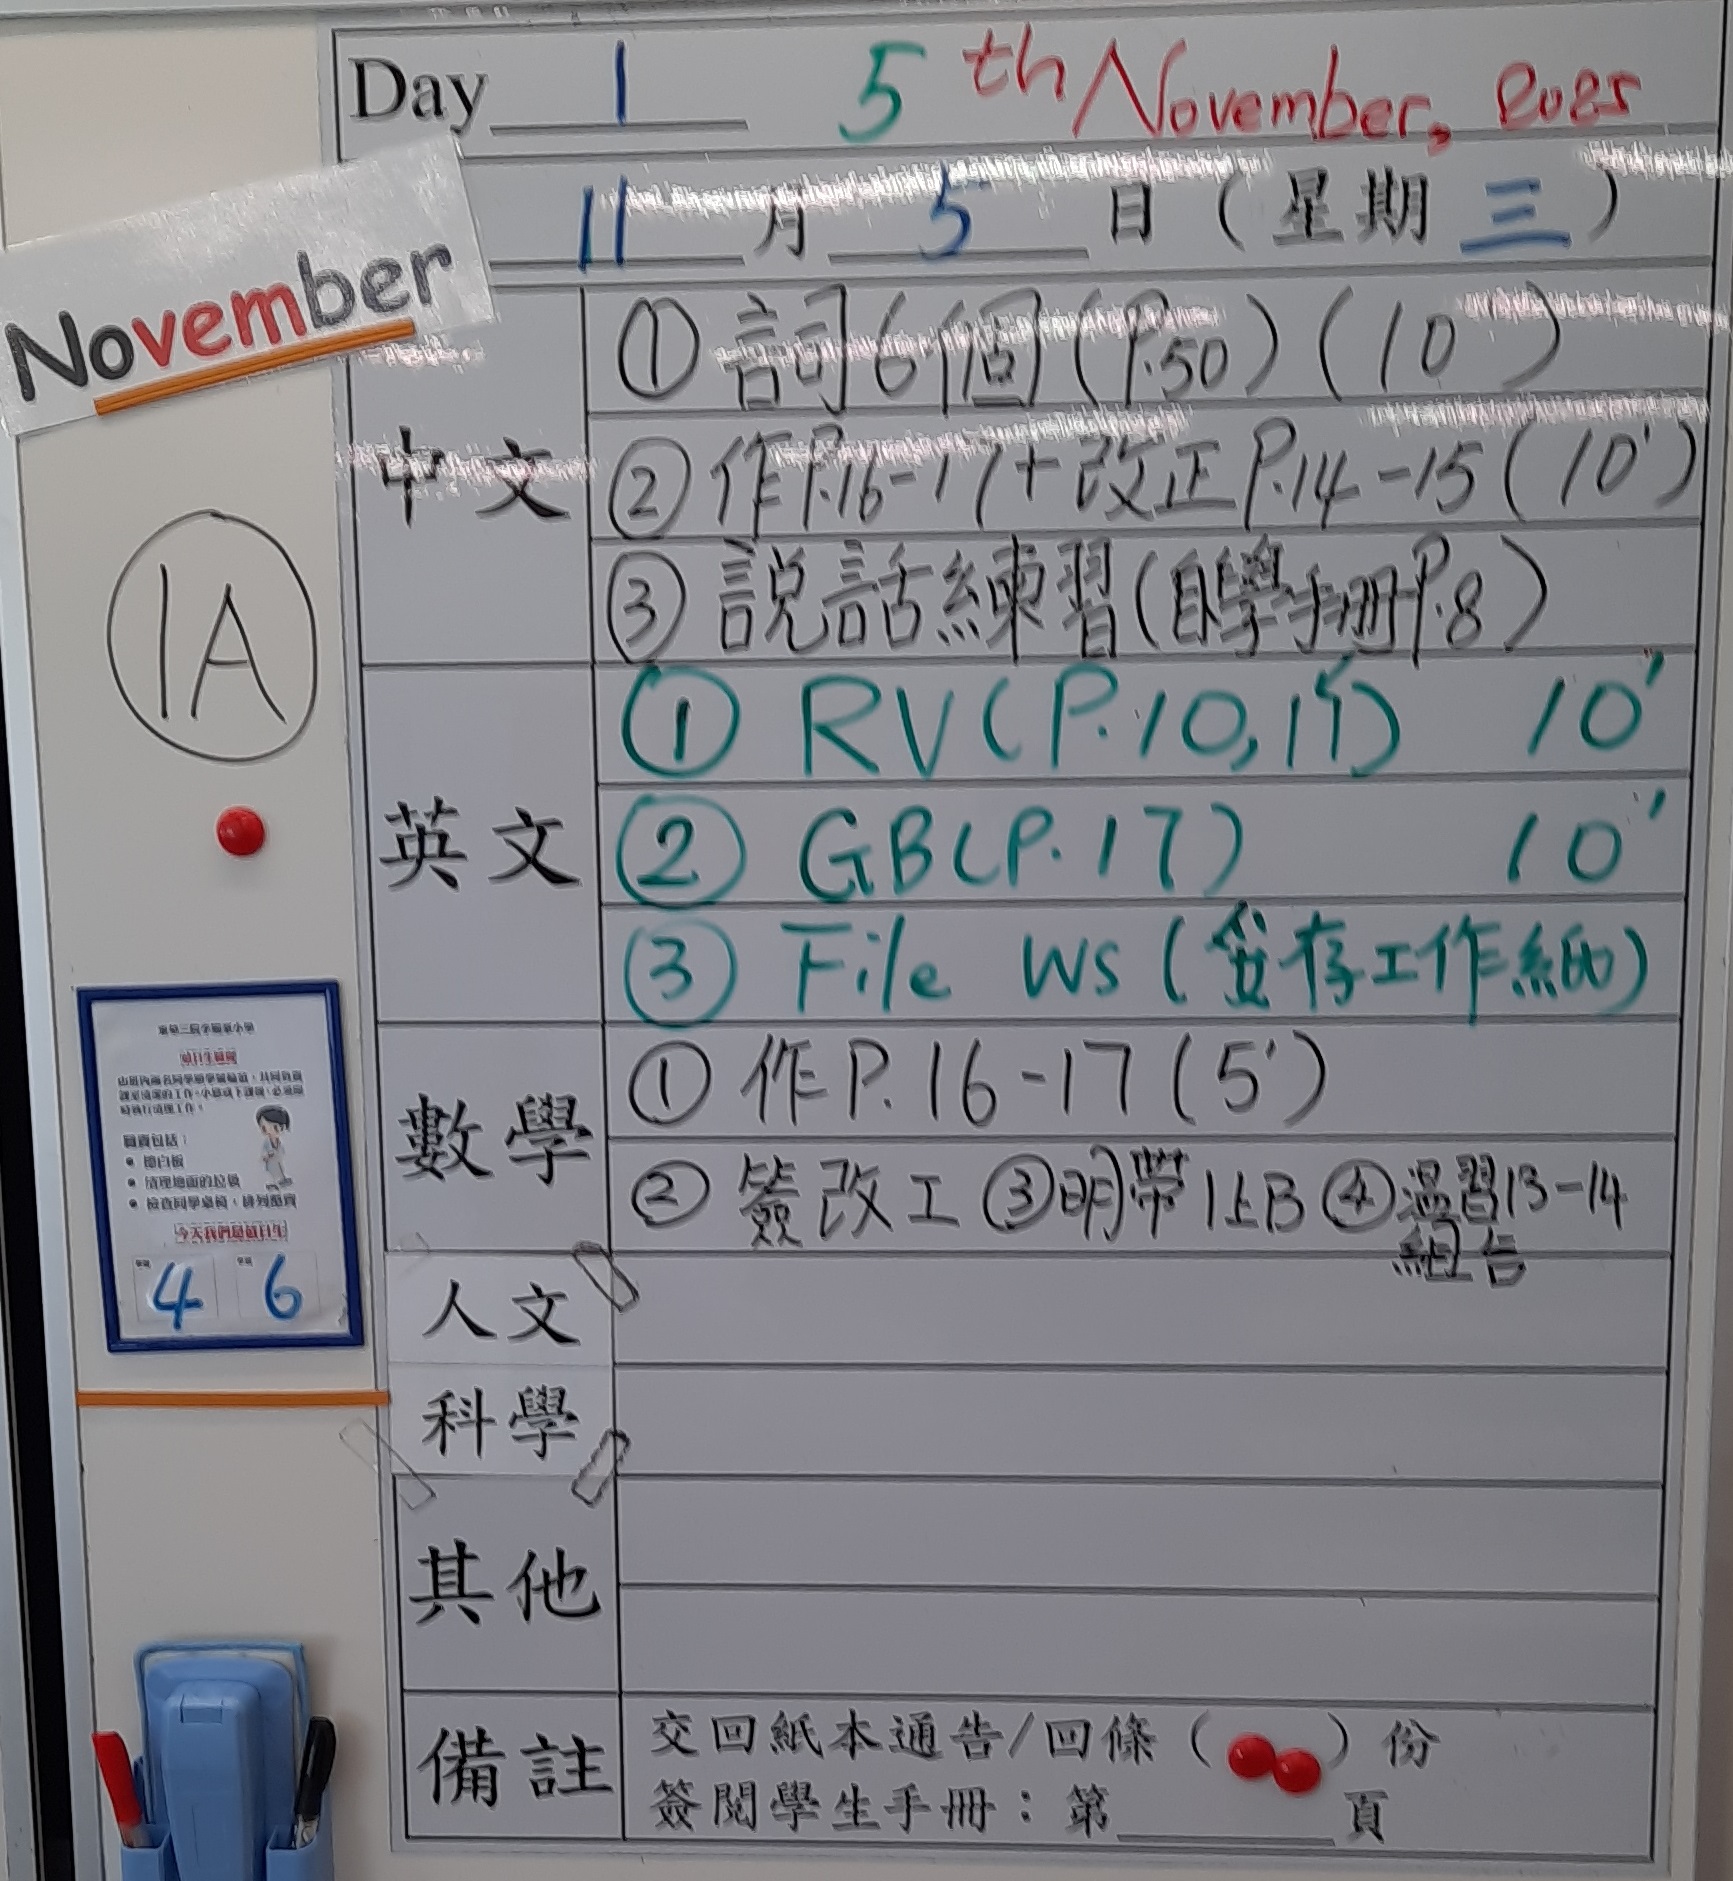 Day 1 5th November, 2025
11月5日（星期三）
November
中文
① 詞6個(P.50)(10')
② 作P.16-17+改正P.14-15(10')
③ 説話練習(自學手册P.8)
1A
英文
① RV(P.10, 10'
② GB(P.17) 10'
③ File WS (簽存工作紙)
數學
① 作P.16-17(5')
② 簽改工 ③明帶1上B ④溫習13-14
人文
科學
其他
備註
交回紙本通告/回條（ ）份
簽閱學生手冊：第 頁
值日生職責
職責包括：
• 擦白板
• 清理地面的垃圾
今天我們是值日生
4 6